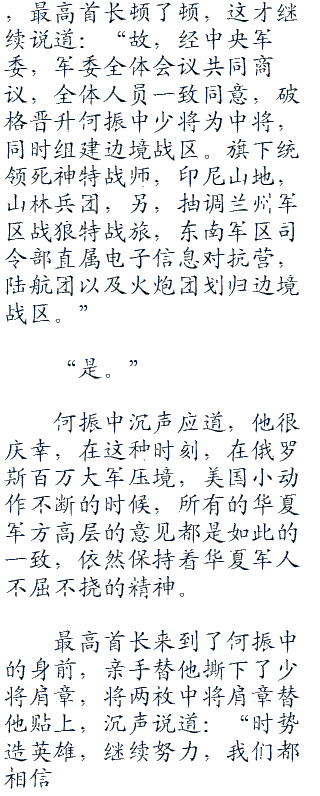 ，最高首长顿了顿，这才继
续说道：“故，经中央军
委，军委全体会议共同商
议，全体人员一致同意，破
格晋升何振中少将为中将，
同时组建边境战区。旗下统
领死神特战师，印尼山地，
山林兵团，另，抽调兰州军
区战狼特战旅，东南军区司
令部直属电子信息对抗营，
陆航团以及火炮团划归边境
战区。”
“是。”
何振中沉声应道，他很
庆幸，在这种时刻，在俄罗
斯百万大军压境，美国小动
作不断的时候，所有的华夏
军方高层的意见都是如此的
一致，依然保持着华夏军人
不屈不挠的精神。
最高首长来到了何振中
的身前，亲手替他撕下了少
将肩章，将两枚中将肩章替
他贴上，沉声说道：“时势
造英雄，继续努力，我们都
相信